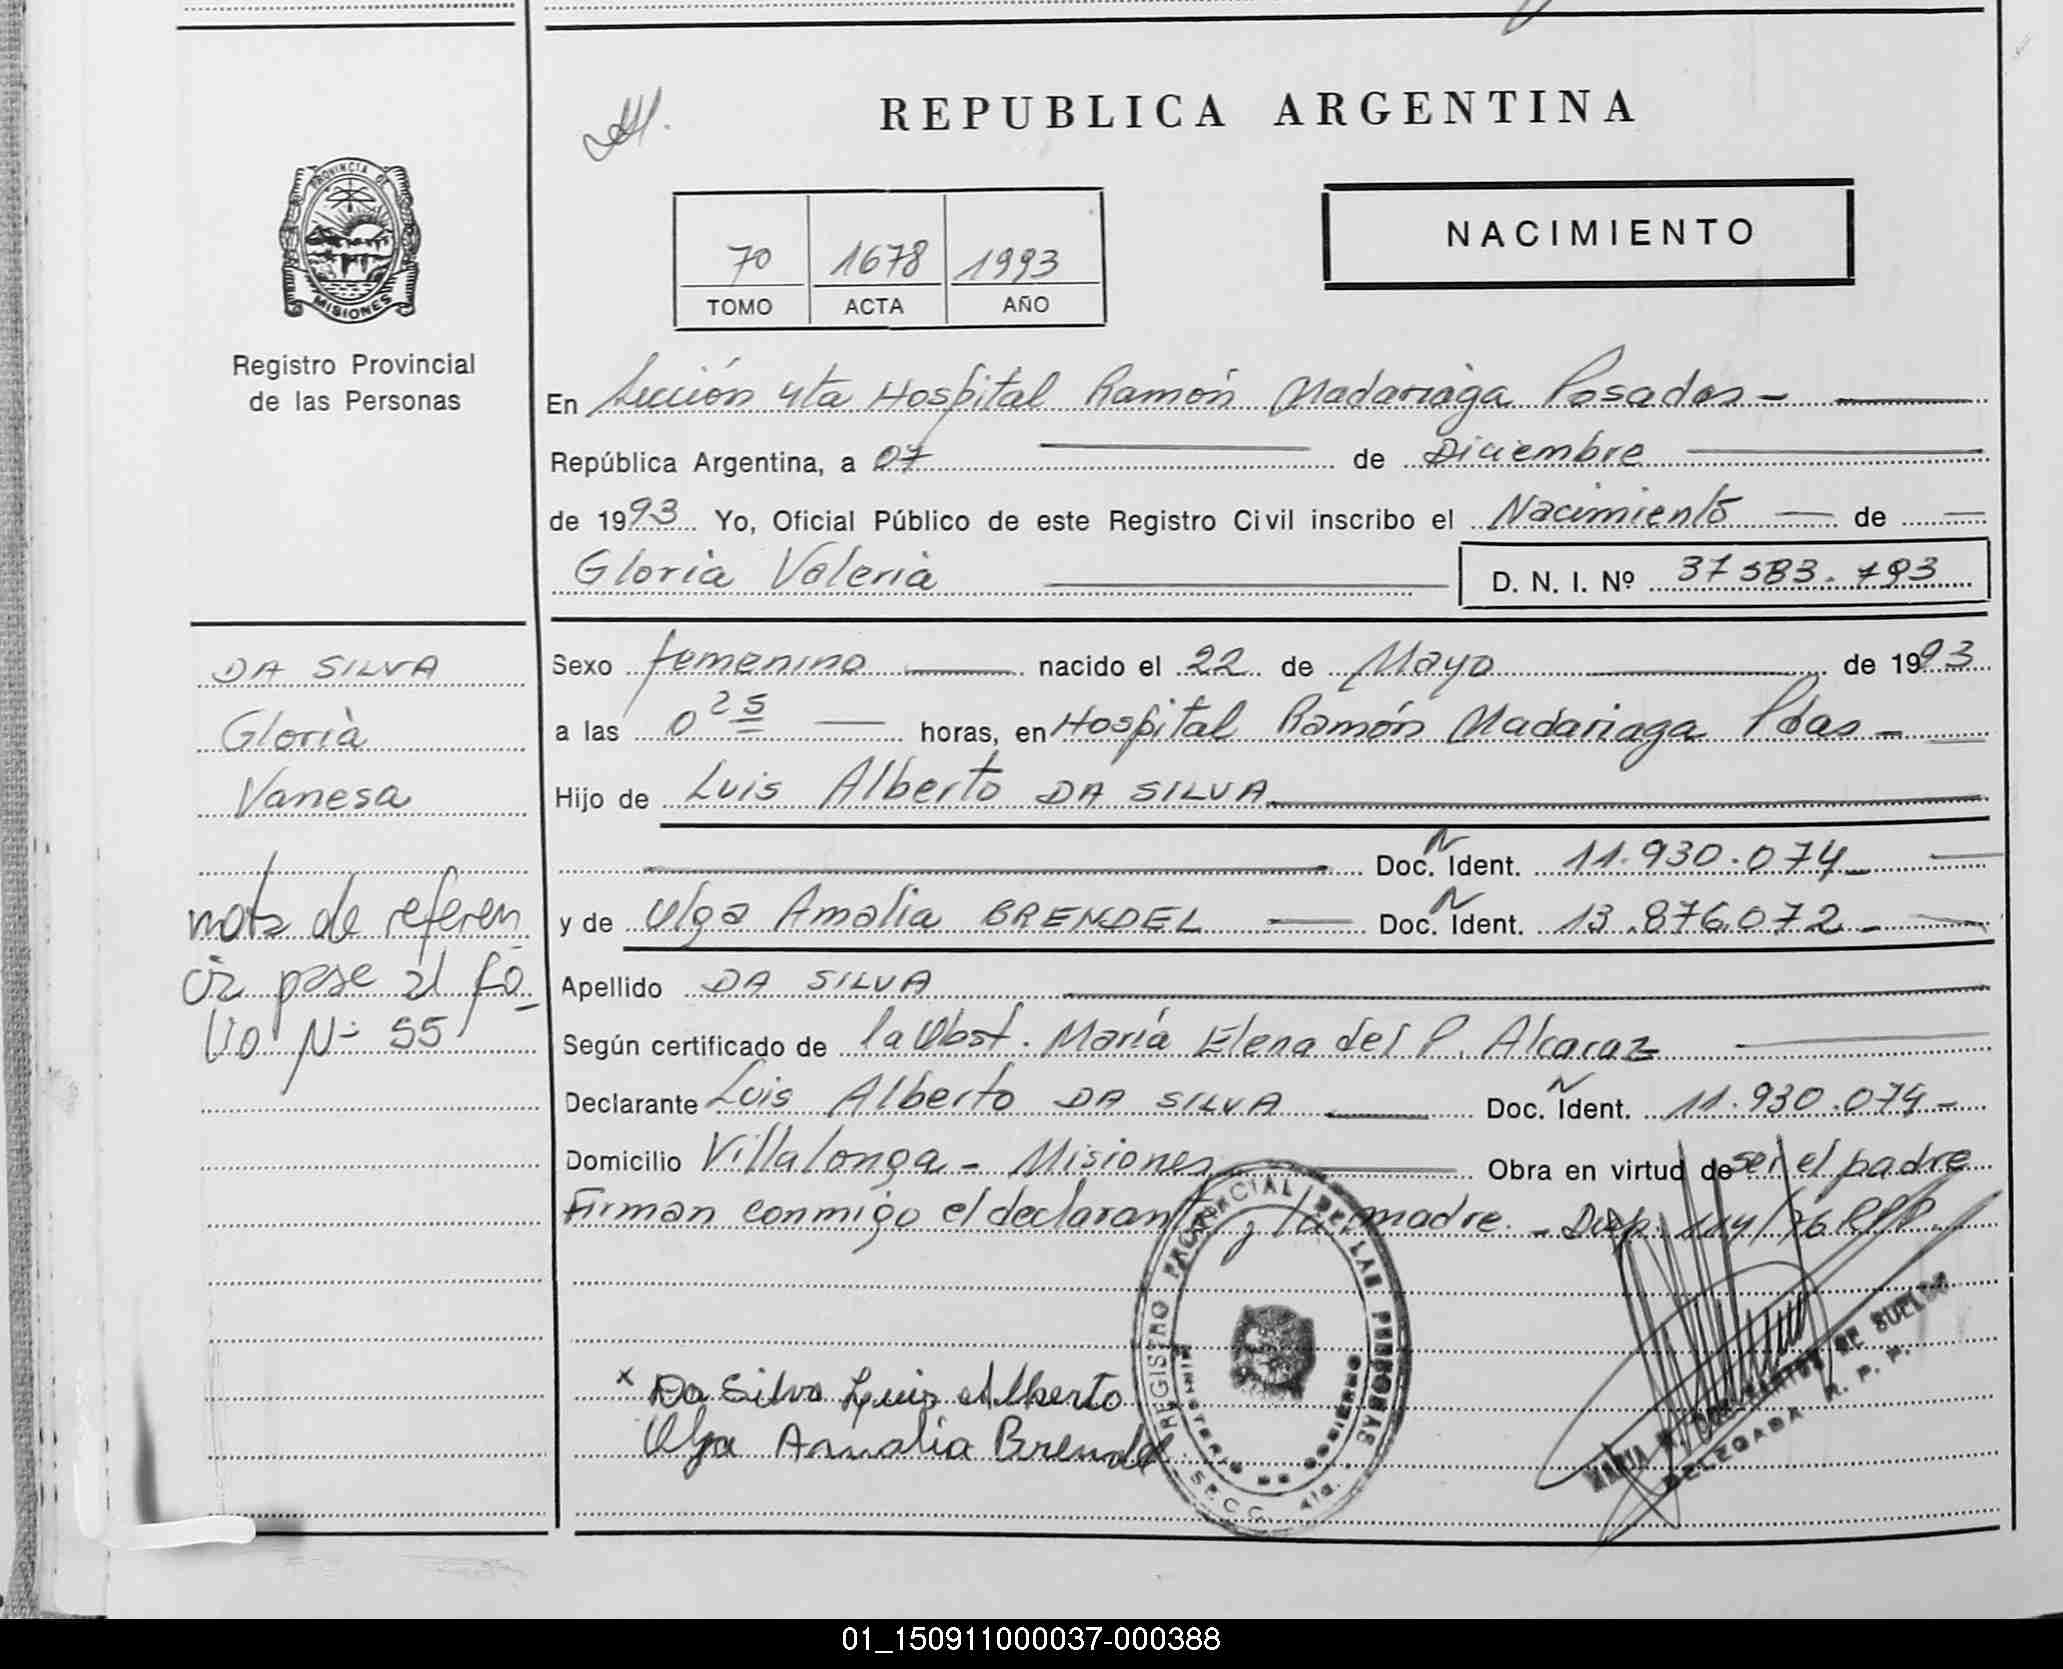 REPUBLICA ARGENTINA
PROVINCIA DE
MISIONES
Registro Provincial
de las Personas
70 1678 1993
TOMO ACTA AÑO
NACIMIENTO
En Sección 4ta Hospital Ramón Madariaga Posadas -
República Argentina, a 07 de Diciembre
de 1993 Yo, Oficial Público de este Registro Civil inscribo el Nacimiento de
Gloria Valeria D. N. I. Nº 37 583. 793
DA SILVA
Gloria
Vanesa
nota de referen
cia pase al fo-
lio Nº 55
Sexo femenino nacido el 22 de Mayo de 1993
a las 0 25 horas, en Hospital Ramón Madariaga Pdas -
Hijo de Luis Alberto DA SILVA
Doc. N Ident. 11.930.074
y de Olga Amalia BRENDEL Doc. N Ident. 13.876.072 -
Apellido DA SILVA
Según certificado de la Obst. María Elena del P. Alcaraz
Declarante Luis Alberto DA SILVA Doc. N Ident. 11.930.074 -
Domicilio Villalonga - Misiones Obra en virtud de ser el padre
Firman conmigo el declarante y la madre. - Disp. 114/76 RPP
x Da Silva Luis Alberto
Olga Amalia Brendel
REGISTRO PROVINCIAL DE LAS PERSONAS
MINISTERIO DE GOBIERNO
SECC. 4ta.
MARIA DE BUELDO
DELEGADA R. P. P.
01_150911000037-000388